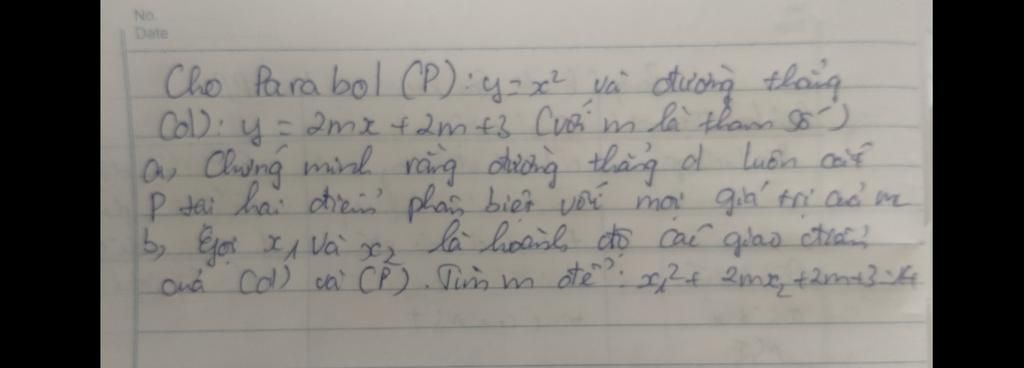 No.
Date
Cho Parabol (P): y = x² và đường thẳng
(d): y = 2mx + 2m + 3 (với m là tham số)
a, Chứng minh rằng đường thẳng d luôn cắt
P tại hai điểm phân biệt với mọi giá trị của m
b, Gọi x₁ và x₂ là hoành độ các giao điểm
của (d) và (P). Tìm m để: x₁² + 2mx₂ + 2m + 3 =